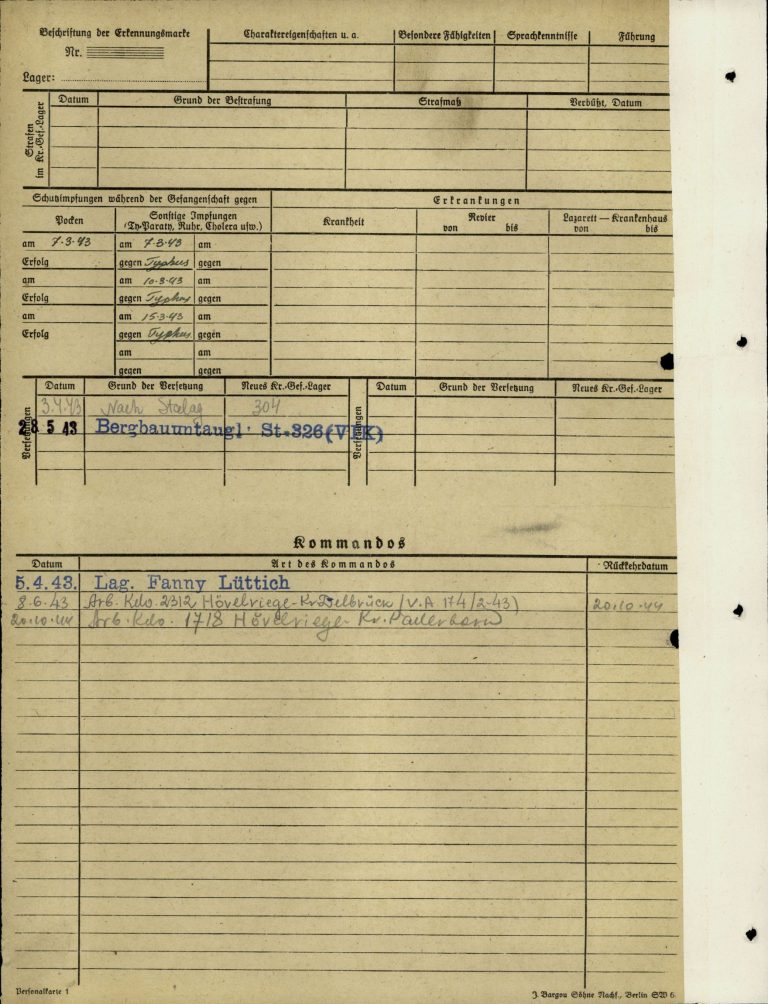 Beschriftung der Erkennungsmarke
Nr.
Lager:
Charaktereigenschaften u. a.
Besondere Fähigkeiten
Sprachkenntnisse
Führung
Strafen im Kr.-Gef.-Lager
Datum
Grund der Bestrafung
Strafmaß
Verbüßt, Datum
Schutzimpfungen während der Gefangenschaft gegen
Erkrankungen
Pocken
Sonstige Impfungen
(Ty-Paraty, Ruhr, Cholera usw.)
Krankheit
Revier
von bis
Lazarett — Krankenhaus
von bis
am 7.3.43 am 7.3.43 am
Erfolg gegen Typhus gegen
am am 10.3.43 am
Erfolg gegen Typhus gegen
am am 15.3.43 am
Erfolg gegen Typhus gegen
am am
gegen gegen
Versetzungen
Datum Grund der Versetzung Neues Kr.-Gef.-Lager
Versetzungen
Datum Grund der Versetzung Neues Kr.-Gef.-Lager
3.4.43 Nach Stalag 304
28 5 43 Bergbauuntaugl. St.326(VIK)
Kommandos
Datum Art des Kommandos Rückkehrdatum
5.4.43. Lag. Fanny Lüttich
8.6.43 Arb. Kdo. 2312 Hövelriege-Kr. Delbrück (V.A 174/2-43) 20.10.44
20.10.44 Arb. Kdo. 1718 Hövelriege- Kr. Paderborn
Personalkarte 1
J. Bargou Söhne Nachf., Berlin SW 6